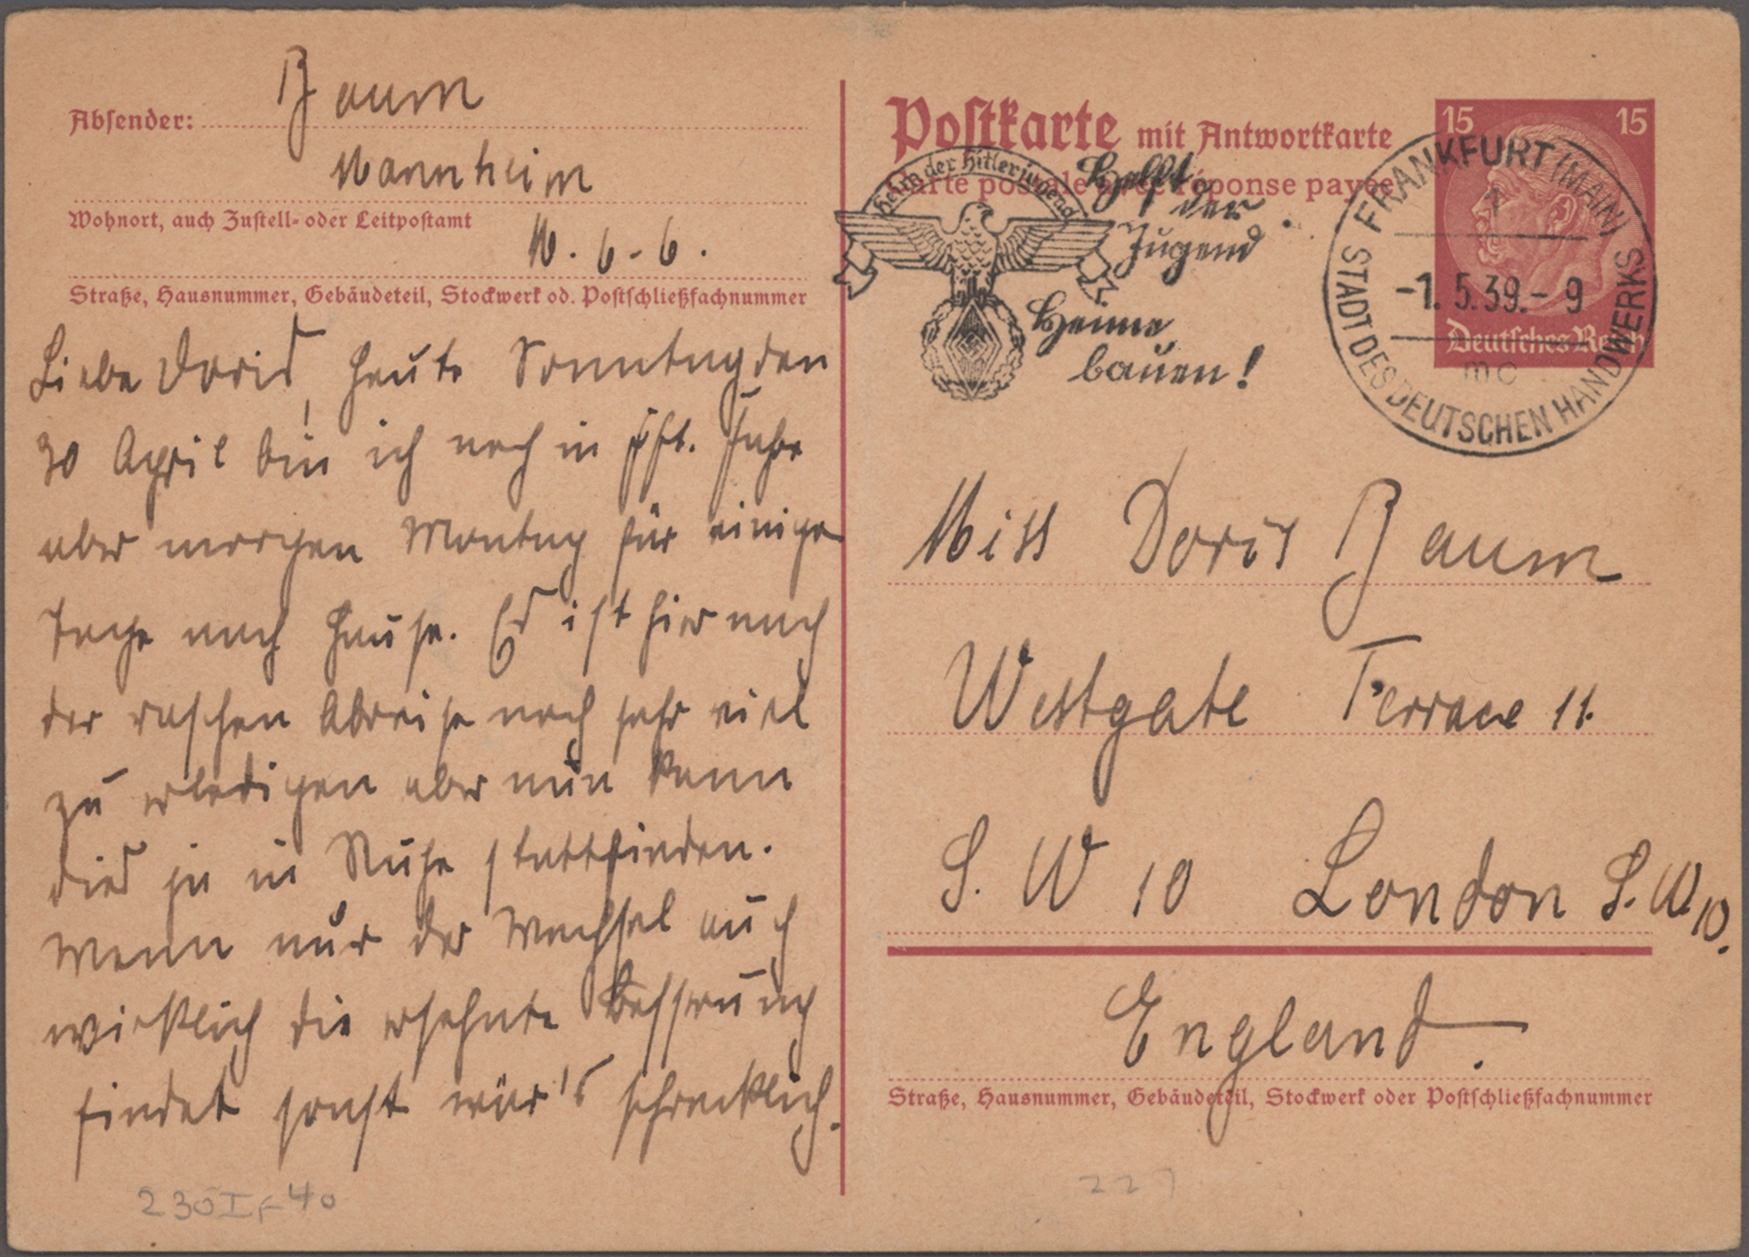 Absender: Baum
Mannheim
Wohnort, auch Zustell- oder Leitpostamt
M. 6-6.
Straße, Hausnummer, Gebäudeteil, Stockwerk od. Postschließfachnummer
Liebe Doris, heute Sonntag den
30 April bin ich noch in Fft. Fahre
aber morgen Montag für einige
Tage nach Hause. Es ist hier nach
der raschen Abreise noch sehr viel
zu erledigen aber nun kann
dies ja in Ruhe stattfinden.
Wenn nur der Wechsel auch
wirklich die ersehnte Besserung
findet sonst wär's schrecklich.
230I F 40
Postkarte mit Antwortkarte
Carte postale avec réponse payée
15 15
Deutsches Reich
FRANKFURT (MAIN) 1
-1.5.39.-9
mc
STADT DES DEUTSCHEN HANDWERKS
Heim der Hitlerjugend
Helft
der
Jugend
Heime
bauen!
Miss Doris Baum
Westgate Terrace 11.
S. W 10 London S.W.10.
England.
Straße, Hausnummer, Gebäudeteil, Stockwerk oder Postschließfachnummer
227